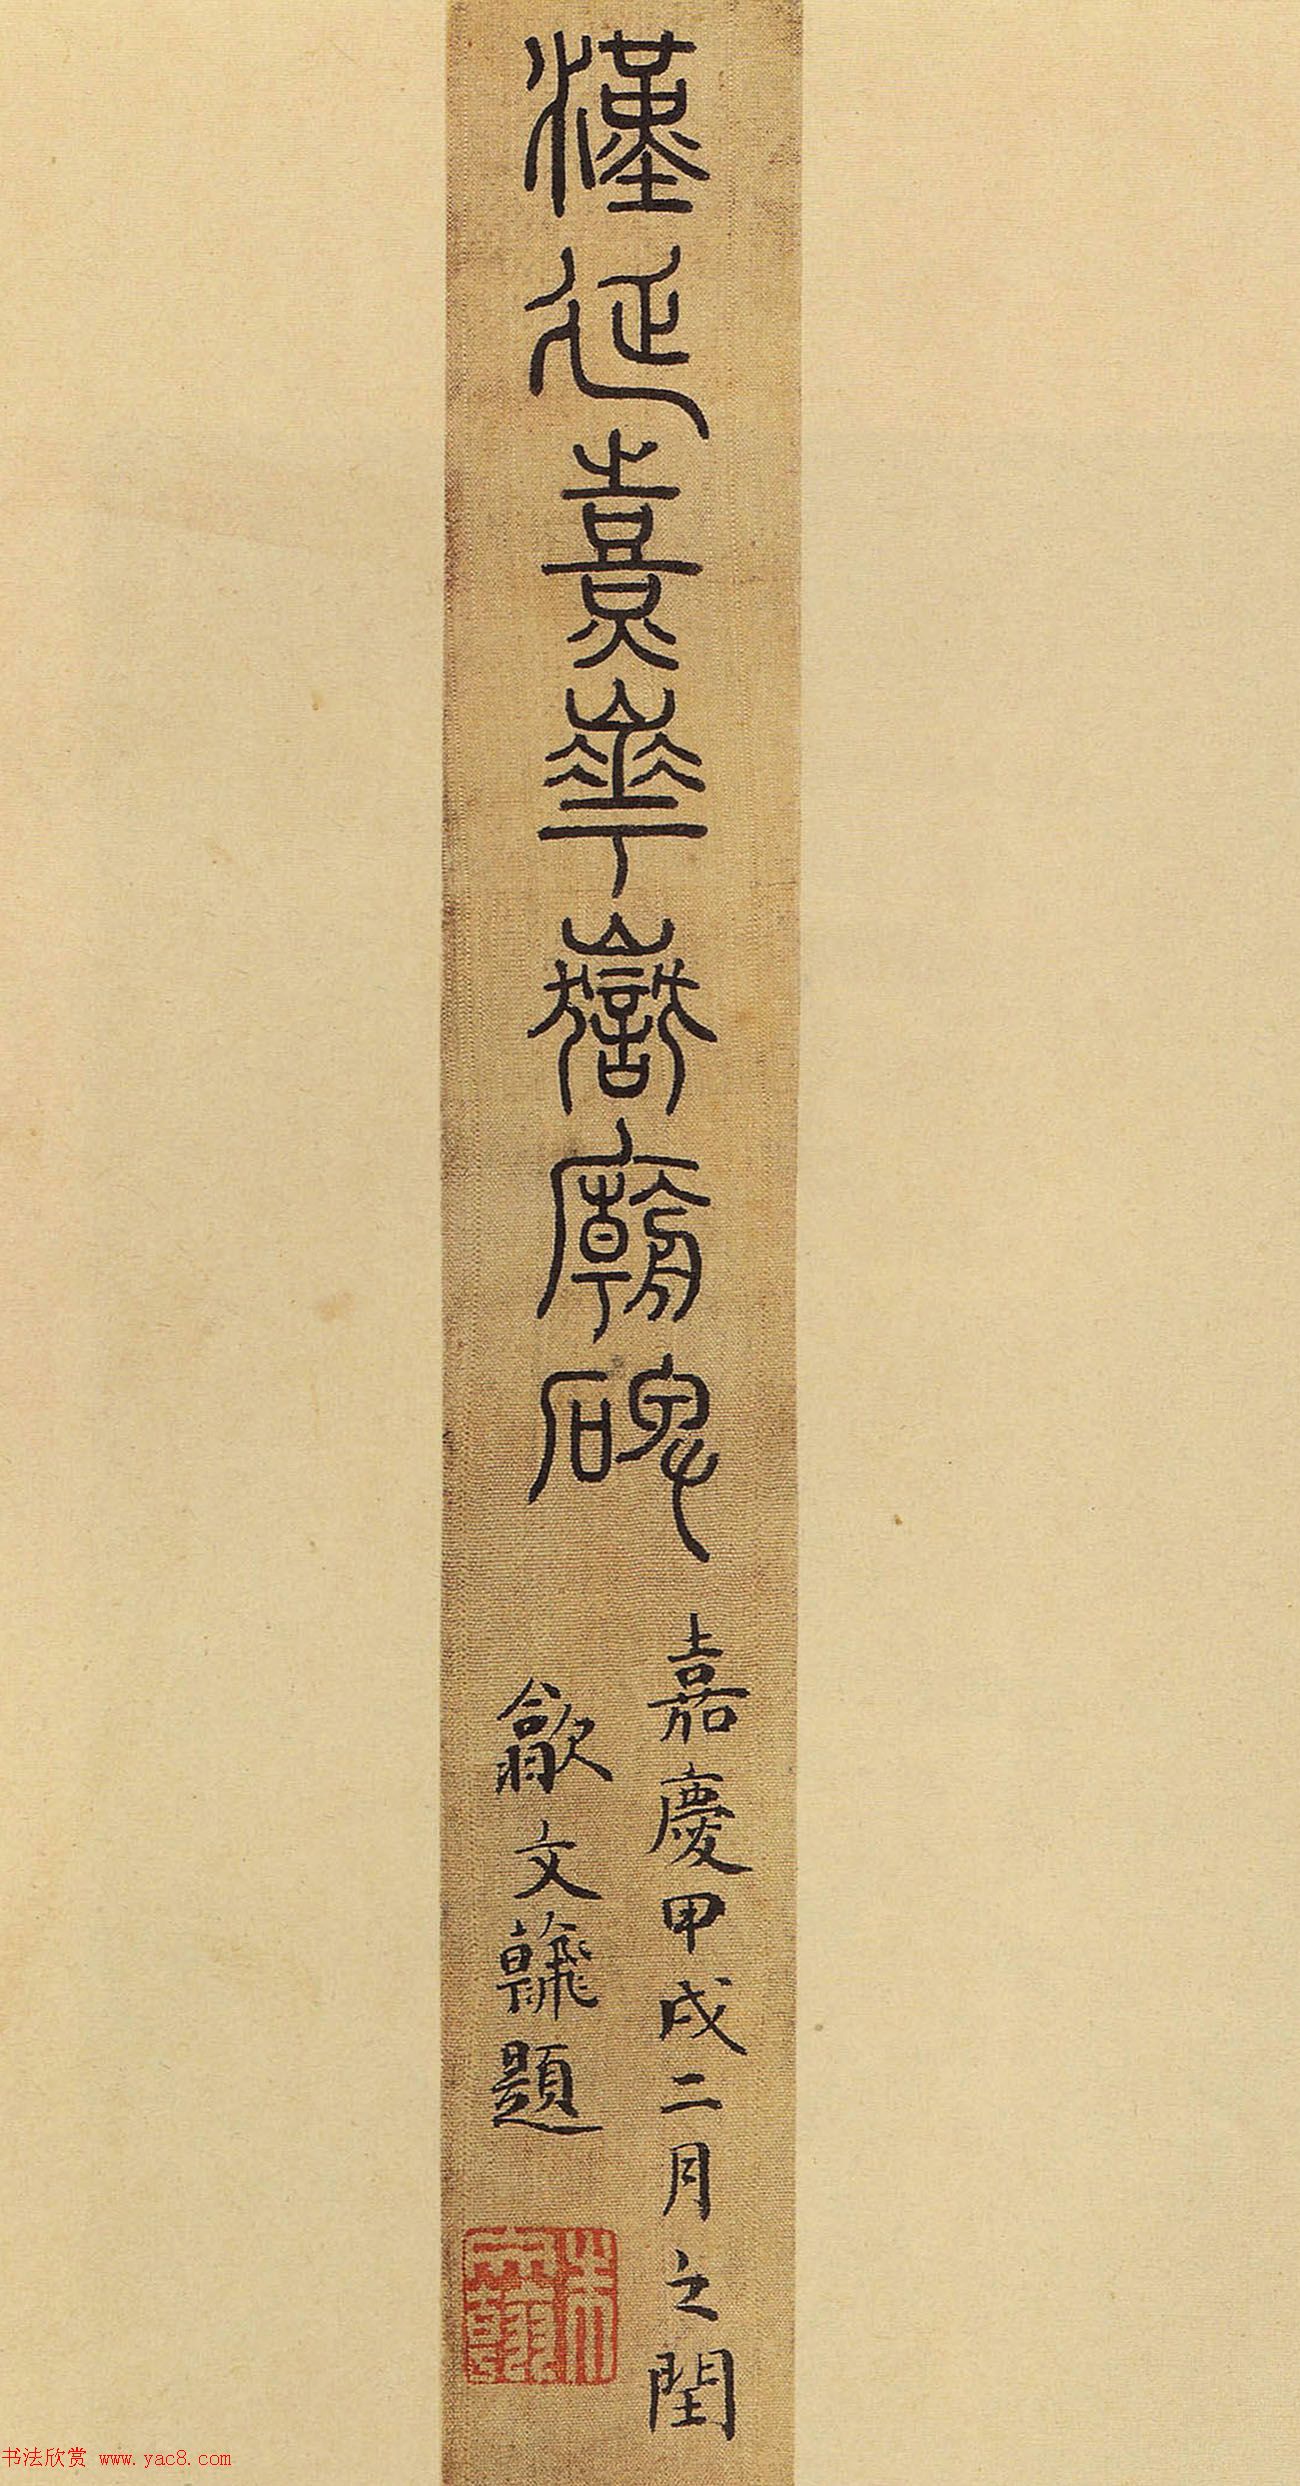 漢延熹華嶽廟碑
嘉慶甲戌二月之閏
歙文翰題
书法欣赏 www.yac8.com